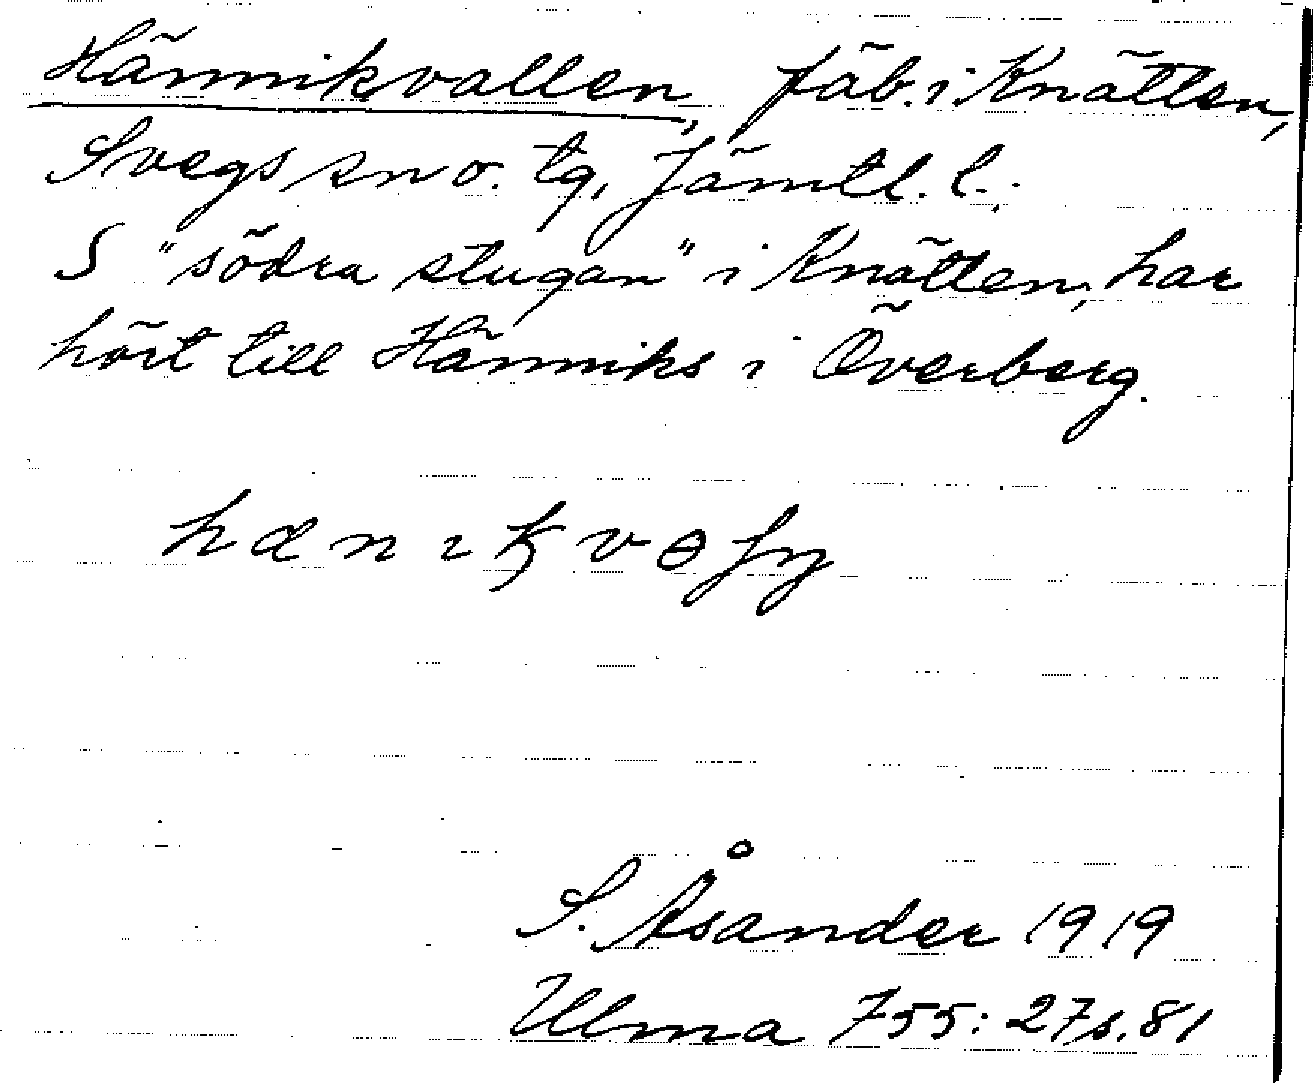 Hännikvallen, fäb. i Knätten,
Svegs sn o. tg, Jämtl. l.:
S "södra stugan" i Knätten, har
hört till Hänniks i Överberg.
S. Åsander 1919
Ulma 755: 27 s. 81